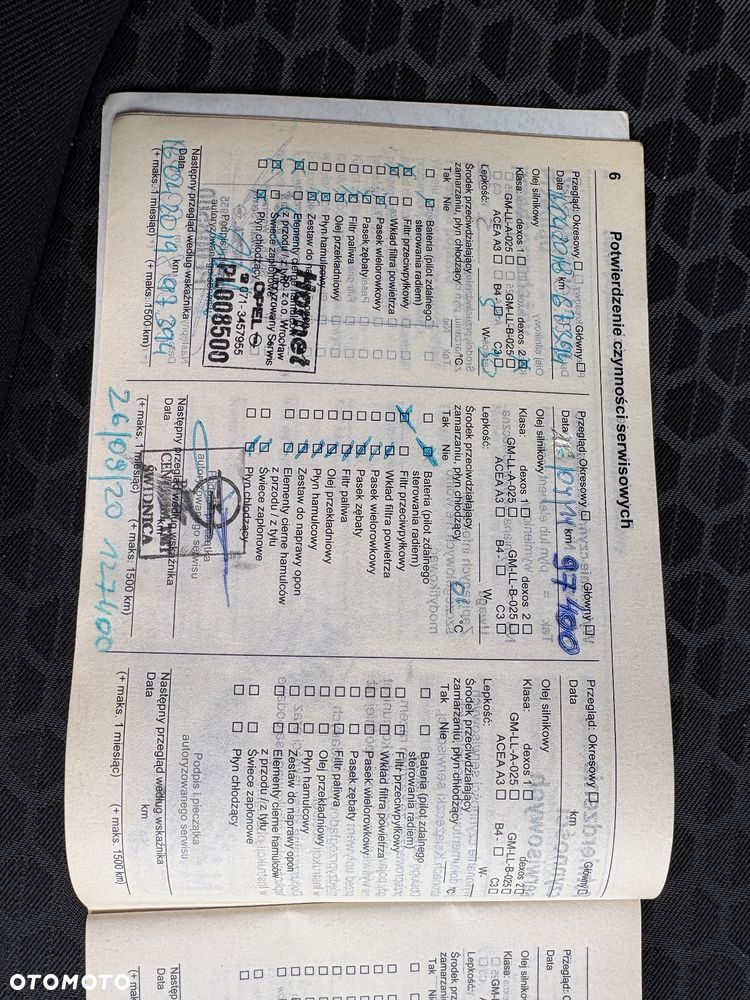 6
Potwierdzenie czynności serwisowych
Przegląd: Okresowy Główny
Data 16042018 km 67394
Olej silnikowy
Klasa: dexos 1 dexos 2
GM-LL-A-025 GM-LL-B-025
ACEA A3 B4 C3
Lepkość: 5 W-
Środek przeciwdziałający
zamarzaniu, płyn chłodzący °C
Tak Nie
Bateria (pilot zdalnego
sterowania radiem)
Filtr przeciwpyłkowy
Wkład filtra powietrza
Pasek wielorowkowy
Pasek zębaty
Filtr paliwa
Olej przekładniowy
Płyn hamulcowy
Zestaw do
Elementy
z przodu
Świece zapłonowe
Płyn chłodzący
Hornet
z o.o. Wrocław
Serwis
OPEL
71-3457955
PL008500
Podpis
Następny przegląd według wskaźnika
Data 16042019 km 97394
(+ maks. 1 miesiąc) (+ maks. 1500 km)
Przegląd: Okresowy Główny
Data km 97400
Olej silnikowy
Klasa: dexos 1 dexos 2
GM-LL-A-025 GM-LL-B-025
ACEA A3 B4 C3
Lepkość: W-
Środek przeciwdziałający
zamarzaniu, płyn chłodzący °C
Tak Nie
Bateria (pilot zdalnego
sterowania radiem)
Filtr przeciwpyłkowy
Wkład filtra powietrza
Pasek wielorowkowy
Pasek zębaty
Filtr paliwa
Olej przekładniowy
Płyn hamulcowy
Zestaw do naprawy opon
Elementy cierne hamulców
z przodu / z tyłu
Świece zapłonowe
Płyn chłodzący
autoryzowanego serwisu
ŚWIDNICA
Następny przegląd według wskaźnika
Data
(+ maks. 1 miesiąc) (+ maks. 1500 km)
26/09/20 127400
Przegląd: Okresowy Główny
Data km
Olej silnikowy
Klasa: dexos 1 dexos 2
GM-LL-A-025 GM-LL-B-025
ACEA A3 B4 C3
Lepkość: W-
Środek przeciwdziałający
zamarzaniu, płyn chłodzący °C
Tak Nie
Bateria (pilot zdalnego
sterowania radiem)
Filtr przeciwpyłkowy
Wkład filtra powietrza
Pasek wielorowkowy
Pasek zębaty
Filtr paliwa
Olej przekładniowy
Płyn hamulcowy
Zestaw do naprawy opon
Elementy cierne hamulców
z przodu / z tyłu
Świece zapłonowe
Płyn chłodzący
Podpis i pieczątka
autoryzowanego serwisu
Następny przegląd według wskaźnika
Data km
(+ maks. 1 miesiąc) (+ maks. 1500 km)
OTOMOTO